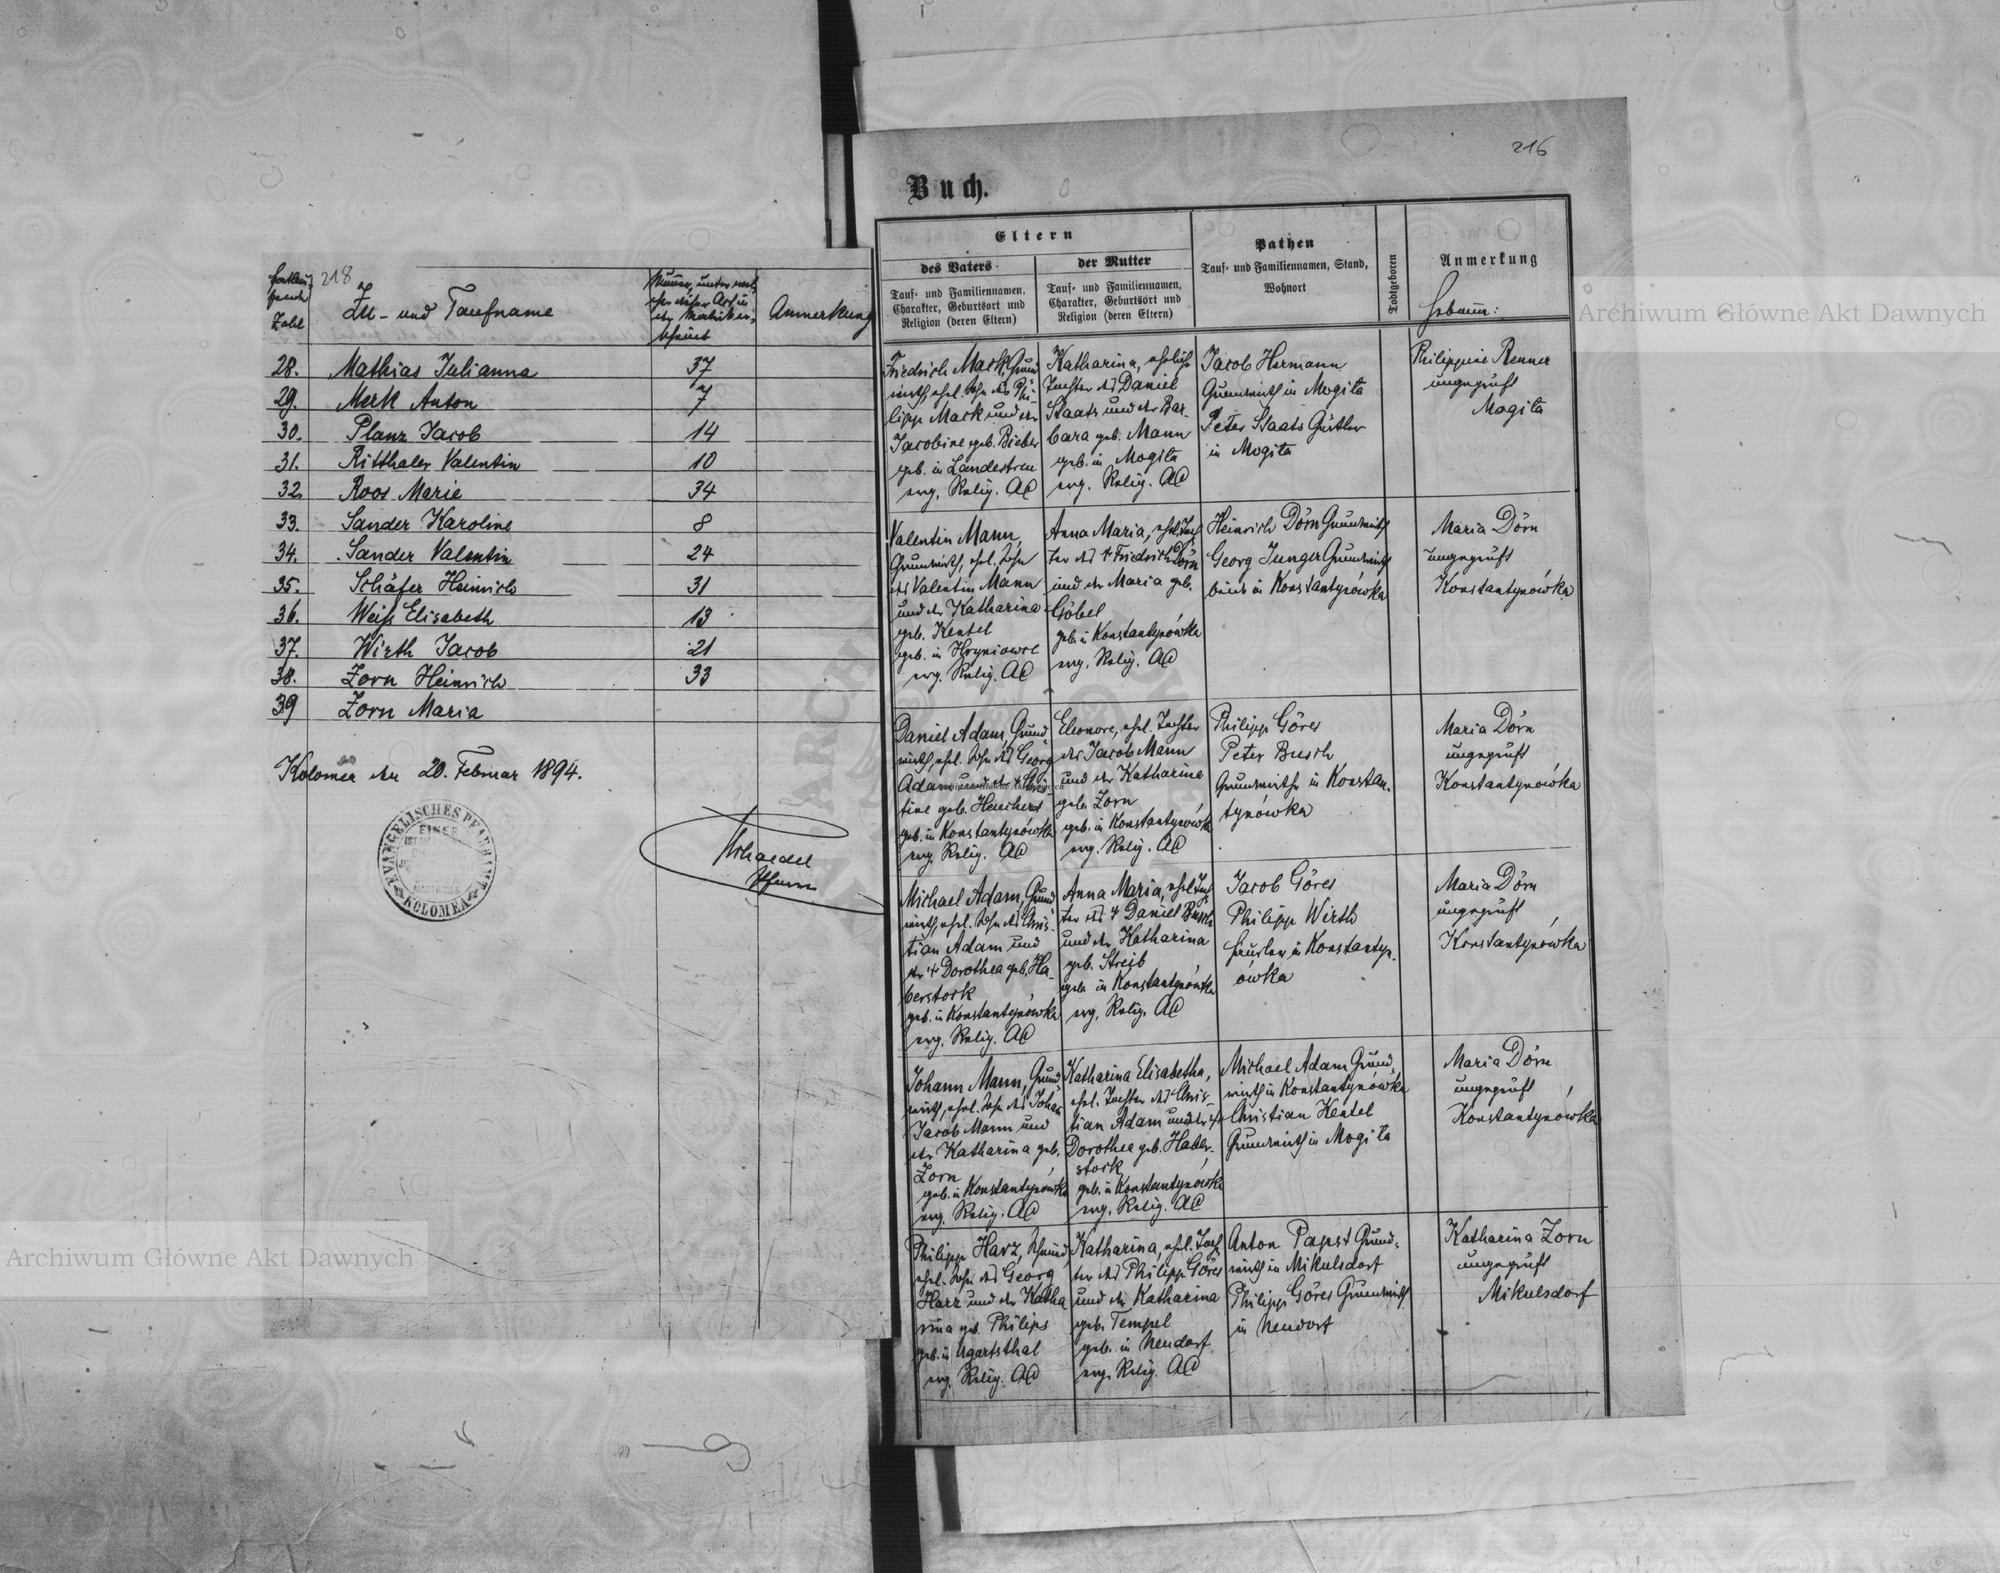 218
Fortlau-
fende
Zahl
Zu- und Taufname
Numer, unter wel-
cher dieser Act in
der Matrik er-
scheint
Anmerkung
28. Mathias Julianna 37
29. Merk Anton 7
30. Planz Jacob 14
31. Ritthaler Valentin 10
32. Roos Marie 34
33. Sander Karoline 8
34. Sander Valentin 24
35. Schäfer Heinrich 31
36. Weiß Elisabeth 13
37. Wirth Jacob 21
38. Zorn Heinrich 33
39 Zorn Maria
Kolomea den 20. Februar 1894.
EVANGELISCHES PFARRAMT
KOLOMEA
216
Buch.
Eltern
des Vaters
Tauf- und Familiennamen,
Charakter, Geburtsort und
Religion (deren Eltern)
der Mutter
Tauf- und Familiennamen,
Charakter, Geburtsort und
Religion (deren Eltern)
Pathen
Tauf- und Familiennamen, Stand,
Wohnort
Todtgeboren
Anmerkung
Hebamme:
Friedrich Mack, Grund
wirth, ehel. Sohn des Phi-
lipp Mack und der
Jacobine geb. Bieber
geb. in Landestreu
evg. Relig. AC
Katharina, eheliche
Tochter des Daniel
Staats und der Bar-
bara geb. Mann
geb. in Mogila
evg. Relig. AC
Jacob Hermann
Grundwirth in Mogila
Peter Staats Gürtler
in Mogila
Philippine Renner
ungeprüft
Mogila
Valentin Mann,
Grundwirth, ehel. Sohn
des Valentin Mann
und der Katharina
geb. Kentel
geb. in Hryniowce
evg. Relig. AC
Anna Maria, ehel. Toch
ter des + Friedrich Dörn
und der Maria geb.
Göbel
geb. in Konstantynówka
evg. Relig. AC
Heinrich Dörn Grundwirth
Georg Junger Grundwirth
beide in Konstantynówka
Maria Dörn
ungeprüft
Konstantynówka
Daniel Adam, Grund
wirth, ehel. Sohn des Georg
Adam und der + Chris-
tine geb. Henchert
geb. in Konstantynówka
evg. Relig. AC
Eleonore, ehel. Tochter
des Jacob Mann
und der Katharina
geb. Zorn
geb. in Konstantynówka
evg. Relig. AC
Philipp Göres
Peter Busch
Grundwirthe in Konstan-
tynówka
Maria Dörn
ungeprüft
Konstantynówka
Michael Adam, Grund
wirth, ehel. Sohn des Chris-
tian Adam und
der + Dorothea geb. Ha-
berstock
geb. in Konstantynówka
evg. Relig. AC
Anna Maria, ehel. Toch
ter des + Daniel Busch
und der Katharina
geb. Streib
geb. in Konstantynówka
evg. Relig. AC
Jacob Göres
Philipp Wirth
Häusler in Konstantyn-
ówka
Maria Dörn
ungeprüft
Konstantynówka
Johann Mann, Grund
wirth, ehel. Sohn des Johann
Jacob Mann und
der Katharina geb.
Zorn
geb. in Konstantynówka
evg. Relig. AC
Katharina Elisabetha,
ehel. Tochter des Chris-
tian Adam und der +
Dorothea geb. Haber-
stock
geb. in Konstantynówka
evg. Relig. AC
Michael Adam Grund-
wirth in Konstantynówka
Christian Kentel
Grundwirth in Mogila
Maria Dörn
ungeprüft
Konstantynówka
Philipp Harz, Schmied,
ehel. Sohn des Georg
Harz und der Katha
rina geb. Philips
geb. in Ugartsthal
evg. Relig. AC
Katharina, ehel. Toch
ter des Philipp Göres
und der Katharina
geb. Tempel
geb. in Neudorf
evg. Relig. AC
Anton Papst Grund-
wirth in Mikulsdorf
Philipp Göres Grundwirth
in Neudorf
Katharina Zorn
ungeprüft
Mikulsdorf
Archiwum Główne Akt Dawnych
Archiwum Główne Akt Dawnych